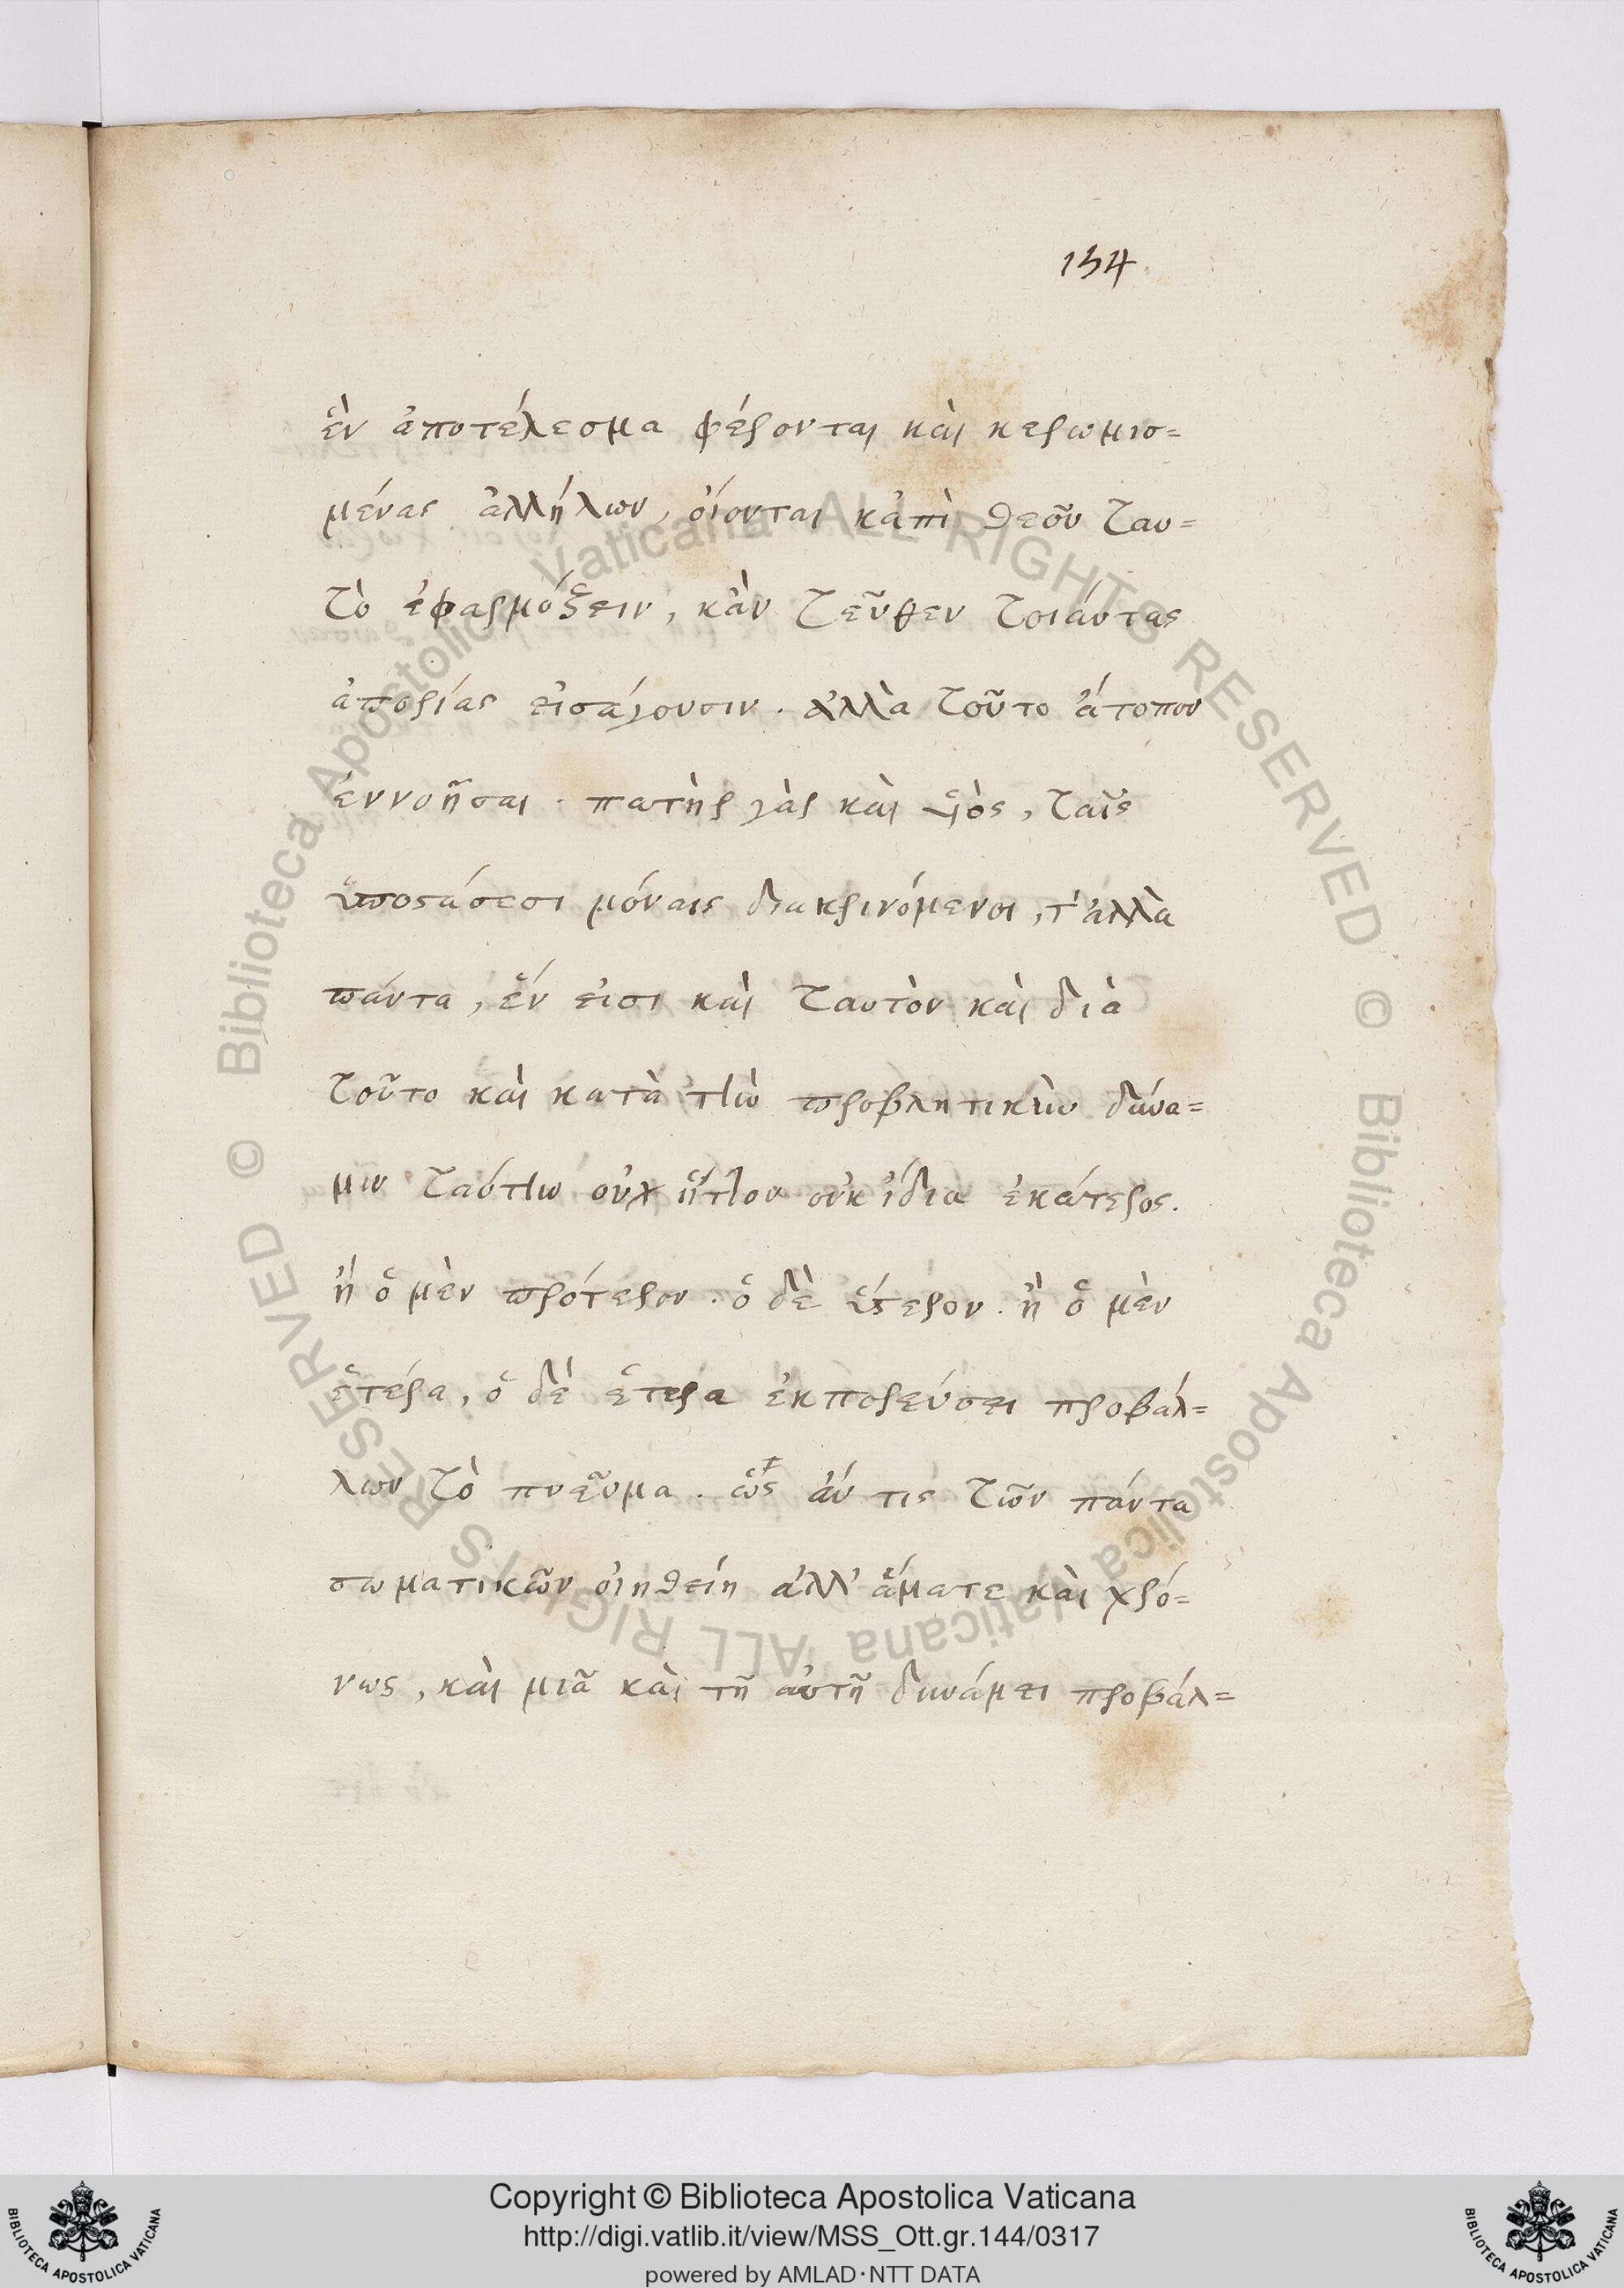 134
ἓν ἀποτέλεσμα φέρονται καὶ κεχωρισ=
μένας ἀλλήλων, οἴονται κἀπὶ θεοῦ ταυ=
τὸ ἐφαρμόξειν, κἂν τεῦθεν τοιάυτας
ἀπορίας εἰσάγουσιν. ἀλλὰ τοῦτο ἄτοπον
ἐννοῆσαι. πατὴρ γὰρ καὶ ὑιὸς, ταῖς
ὑποστάσεσι μόναις διακρινόμενοι, τ' ἀλλα
πάντα, ἕν εἰσι καὶ ταυτὸν καὶ διὰ
τοῦτο καὶ κατὰ τὴν προβλητικὴν δύνα=
μιν ταύτην οὐχ ἧττον οὐκ ἰδία ἑκάτερος.
ἢ ὁ μὲν πρότερον. ὁ δὲ ὕστερον. ἢ ὁ μὲν
ἑτέρα, ὁ δὲ ἑτερα ἐκπορεύσει προβάλ=
λων τὸ πνεῦμα. ὥς ἄν τις τῶν πάντα
σωματικῶν οἰηθείη ἀλλ' ἅματε καὶ χρό=
νως, καὶ μιᾶ καὶ τῆ αὐτῆ δυνάμει προβάλ=
Copyright © Biblioteca Apostolica Vaticana
http://digi.vatlib.it/view/MSS_Ott.gr.144/0317
powered by AMLAD·NTT DATA
BIBLIOTECA APOSTOLICA VATICANA
BIBLIOTECA APOSTOLICA VATICANA
© Biblioteca Apostolica Vaticana ALL RIGHTS RESERVED © Biblioteca Apostolica Vaticana ALL RIGHTS RESERVED